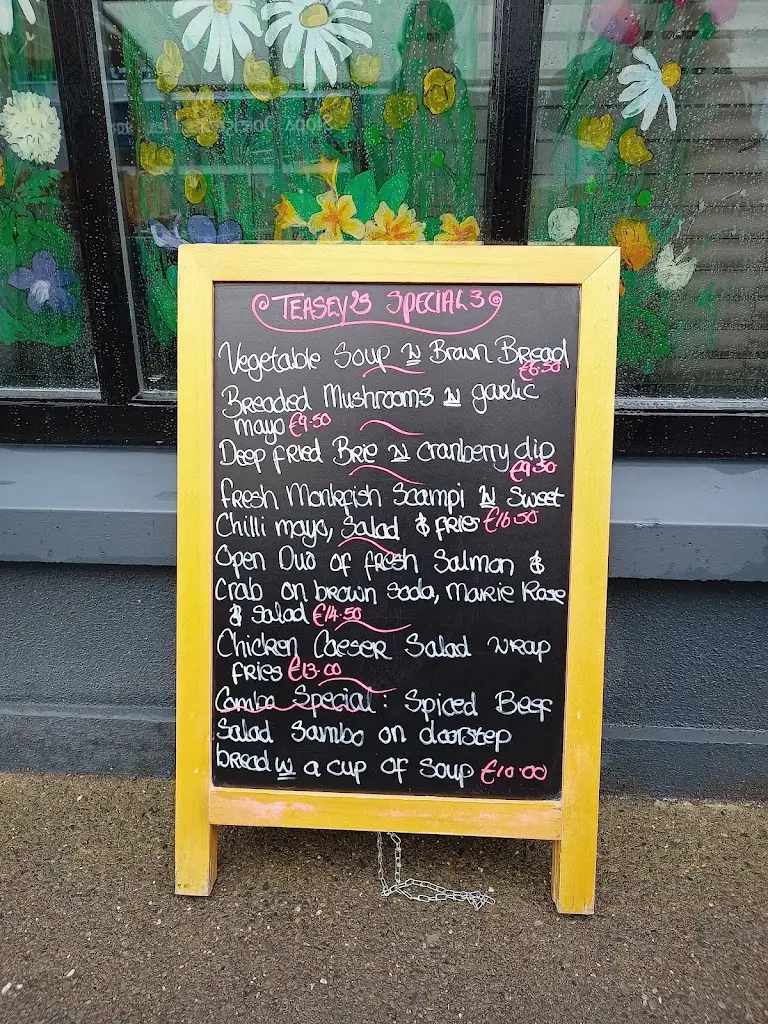 TEASEY'S SPECIALS
Vegetable Soup w Brown Bread
€6.50
Breaded Mushrooms w garlic
mayo €9.50
Deep fried Brie w cranberry dip
€9.50
Fresh Monkfish Scampi w Sweet
Chilli mayo, Salad & fries €16.50
Open Duo of fresh Salmon &
Crab on brown soda, Marie Rose
& Salad €14.50
Chicken Caeser Salad wrap
fries €13.00
Combo Special: Spiced Beef
Salad Sambo on doorstep
bread w a cup of soup €10.00